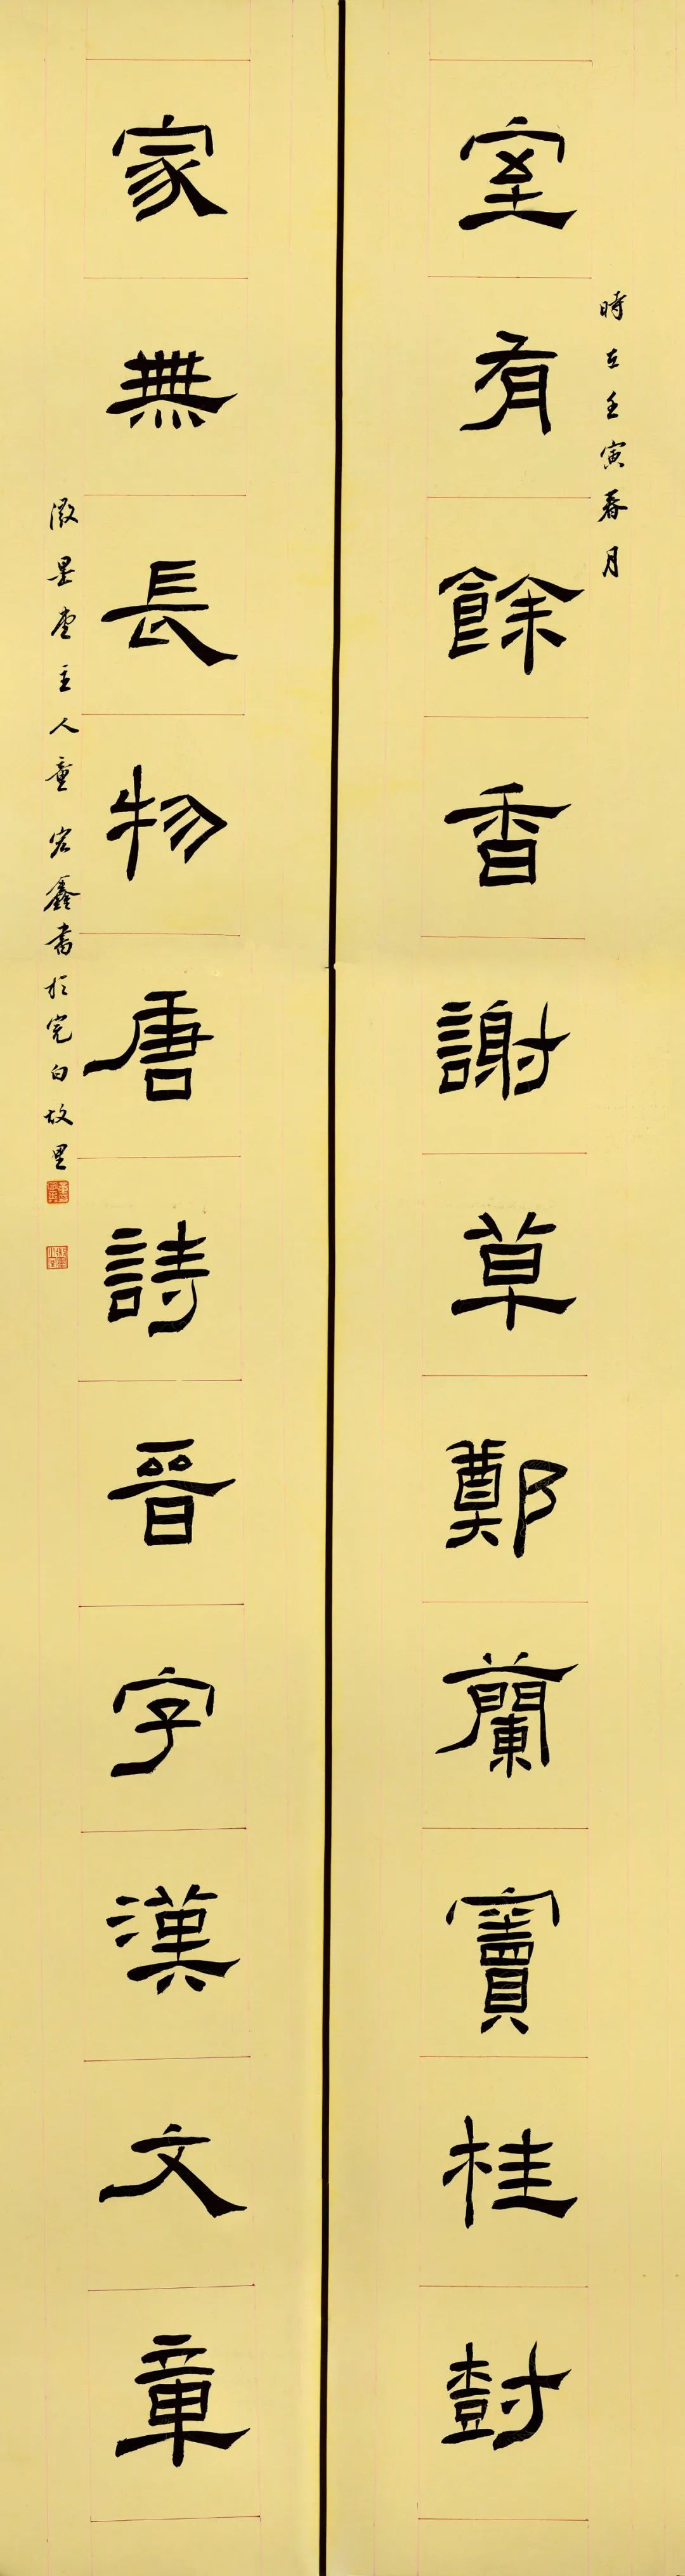 時在壬寅春月
室有餘香謝草鄭蘭竇桂樹
家無長物唐詩晉字漢文章
澂墨堂主人童宏鑫書於完白故里